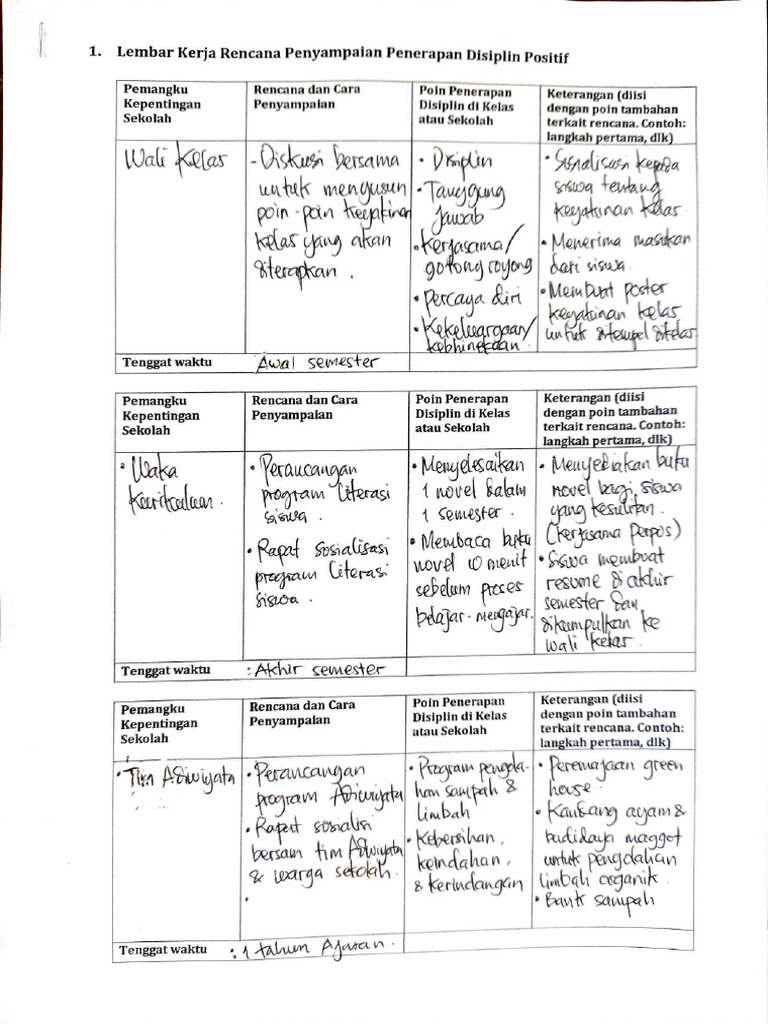 1. Lembar Kerja Rencana Penyampaian Penerapan Disiplin Positif
Pemangku
Kepentingan
Sekolah
Rencana dan Cara
Penyampaian
Poin Penerapan
Disiplin di Kelas
atau Sekolah
Keterangan (diisi
dengan poin tambahan
terkait rencana. Contoh:
langkah pertama, dlk)
Wali Kelas
- Diskusi bersama
untuk mengusun
poin-poin keyakinan
kelas yang akan
diterapkan.
• Disiplin
• Tanggung
jawab
• Kerjasama/
gotong royong
• Percaya diri
• Kekeluargaan/
kebhinekaan
• Sisialisasi kepada
siswa tentang
keyakinan kelas.
• Menerima masukan
dari siswa.
• Membuat poster
keyakinan kelas
untuk ditempel dikelas
Tenggat waktu
: Awal semester
Pemangku
Kepentingan
Sekolah
Rencana dan Cara
Penyampaian
Poin Penerapan
Disiplin di Kelas
atau Sekolah
Keterangan (diisi
dengan poin tambahan
terkait rencana. Contoh:
langkah pertama, dlk)
• Waka
Kurikulum.
• Perancangan
program Literasi
siswa.
• Rapat sosialisasi
program Literasi
siswa.
• Menyelesaikan
1 novel dalam
1 semester.
• Membaca buku
novel 10 menit
sebelum proses
belajar-mengajar.
• Menyediakan buku
novel bagi siswa
yang kesulitan.
(kerjasama perpus)
• Siswa membuat
resume di akhir
semester dan
dikumpulkan ke
wali kelas.
Tenggat waktu
: Akhir semester
Pemangku
Kepentingan
Sekolah
Rencana dan Cara
Penyampaian
Poin Penerapan
Disiplin di Kelas
atau Sekolah
Keterangan (diisi
dengan poin tambahan
terkait rencana. Contoh:
langkah pertama, dlk)
• Tim Adiwiyata
• Perancangan
program Adiwiyata
• Rapat sosialisi
bersam tim Adwiyata
& warga sekolah.
•
• Program pengola-
han sampah &
limbah
• Kebersihan,
keindahan,
& kerindangan
• Peremajaan green
house.
• Kandang ayam &
budidaya maggot
untuk pengolahan
limbah organik.
• Bank sampah
Tenggat waktu
: 1 tahun Ajaran.